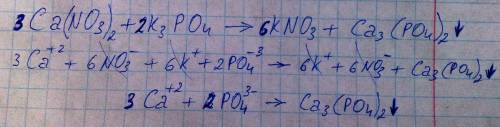 3Ca(NO₃)₂ + 2K₃PO₄ → 6KNO₃ + Ca₃(PO₄)₂↓
3Ca⁺² + 6NO₃⁻ + 6K⁺ + 2PO₄⁻³ → 6K⁺ + 6NO₃⁻ + Ca₃(PO₄)₂↓
3Ca⁺² + 2PO₄³⁻ → Ca₃(PO₄)₂↓